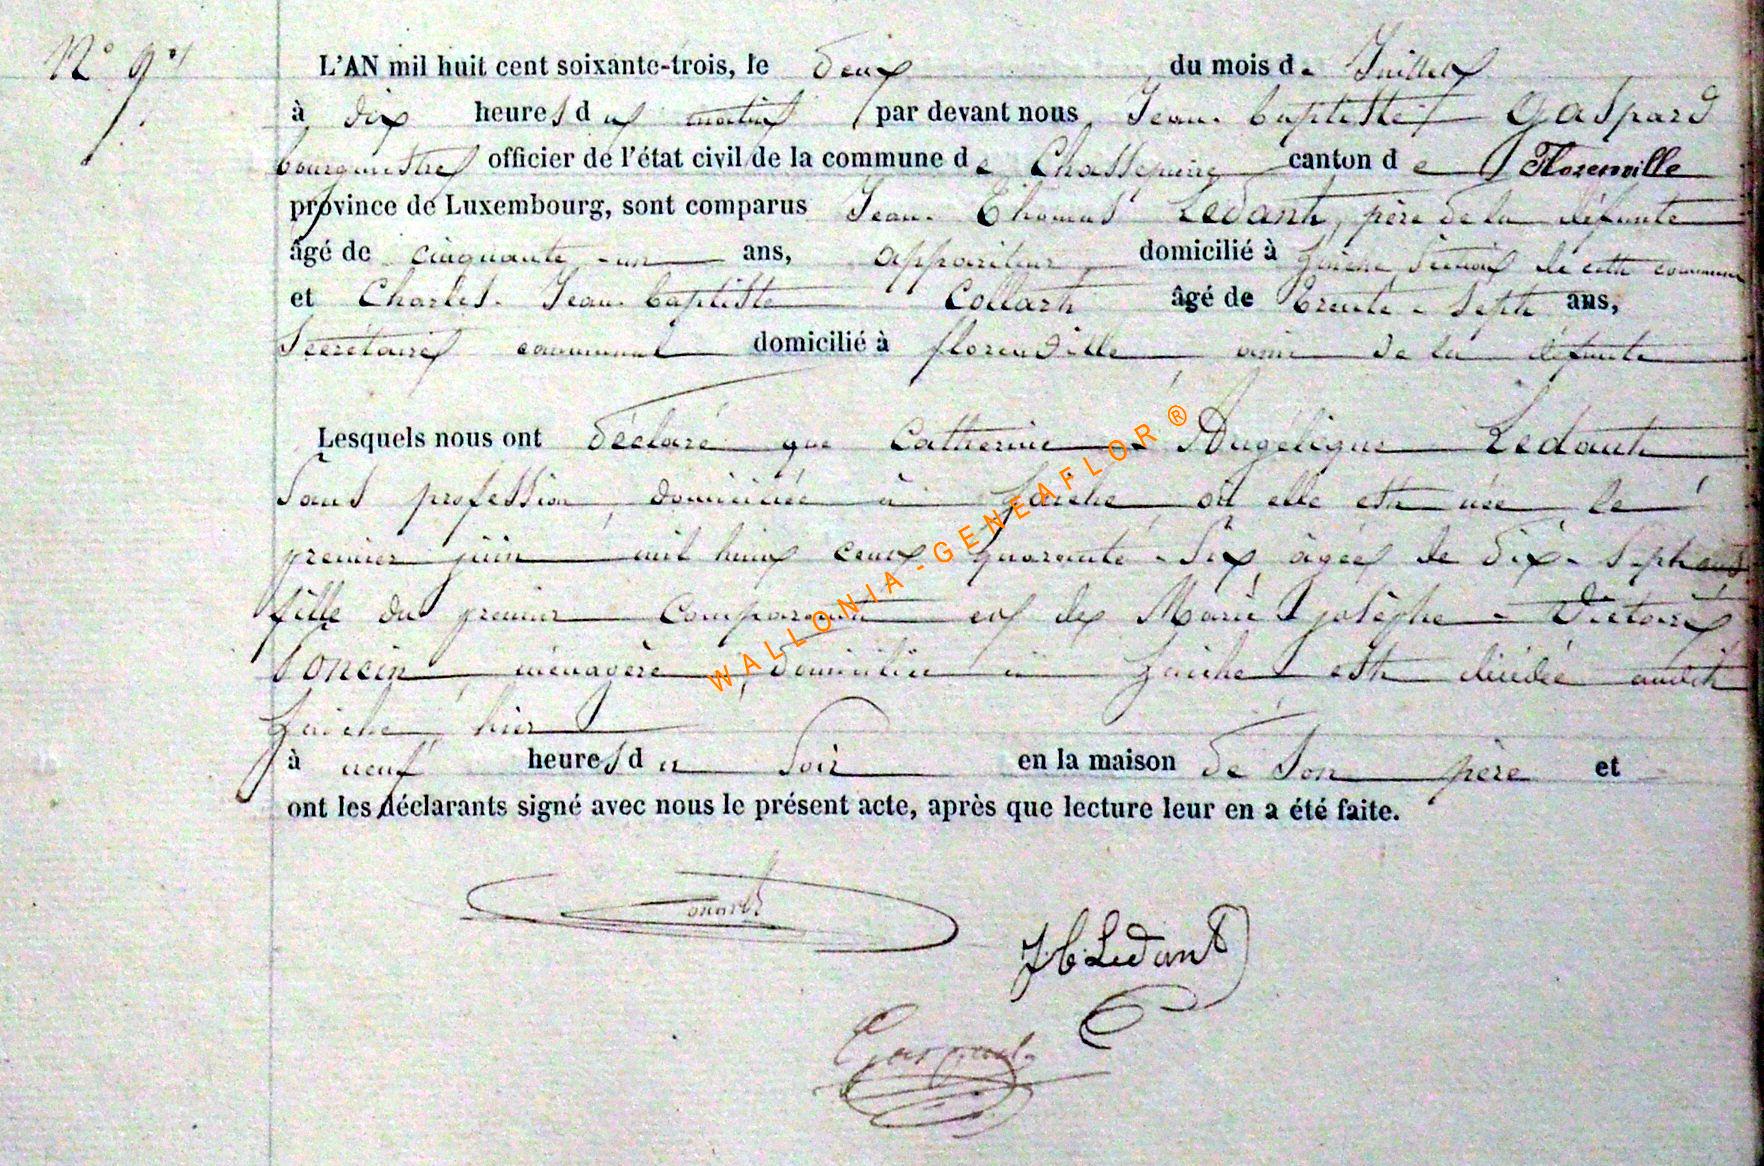 N° 9
L'AN mil huit cent soixante-trois, le deux du mois de Juillet
à dix heures du matin par devant nous Jean-baptiste Gaspard
bourgmestre officier de l'état civil de la commune de Chassepierre canton de Florenville
province de Luxembourg, sont comparus Jean-Thomas Ledant, père de la défunte
âgé de cinquante-un ans, appariteur, domicilié à Laiche section de cette commune
et Charles-Jean-baptiste Collart âgé de trente-sept ans,
Secrétaire communal domicilié à florenville ami de la défunte
Lesquels nous ont déclaré que Catherine-Angélique Ledant
Sans profession, domiciliée à Laiche, où elle est née le
premier juin mil huit cent quarante-Six, âgée de dix-Sept ans
fille du premier comparant et de Marie josèphe-Victoire
Poncin, ménagère, domiciliée à Laiche est décédée audit
Laiche, hier
à neuf heures du Soir en la maison de Son père et
ont les déclarants signé avec nous le présent acte, après que lecture leur en a été faite.
JT Ledant
Gaspard
WALLONIA-GENEAFLOR®